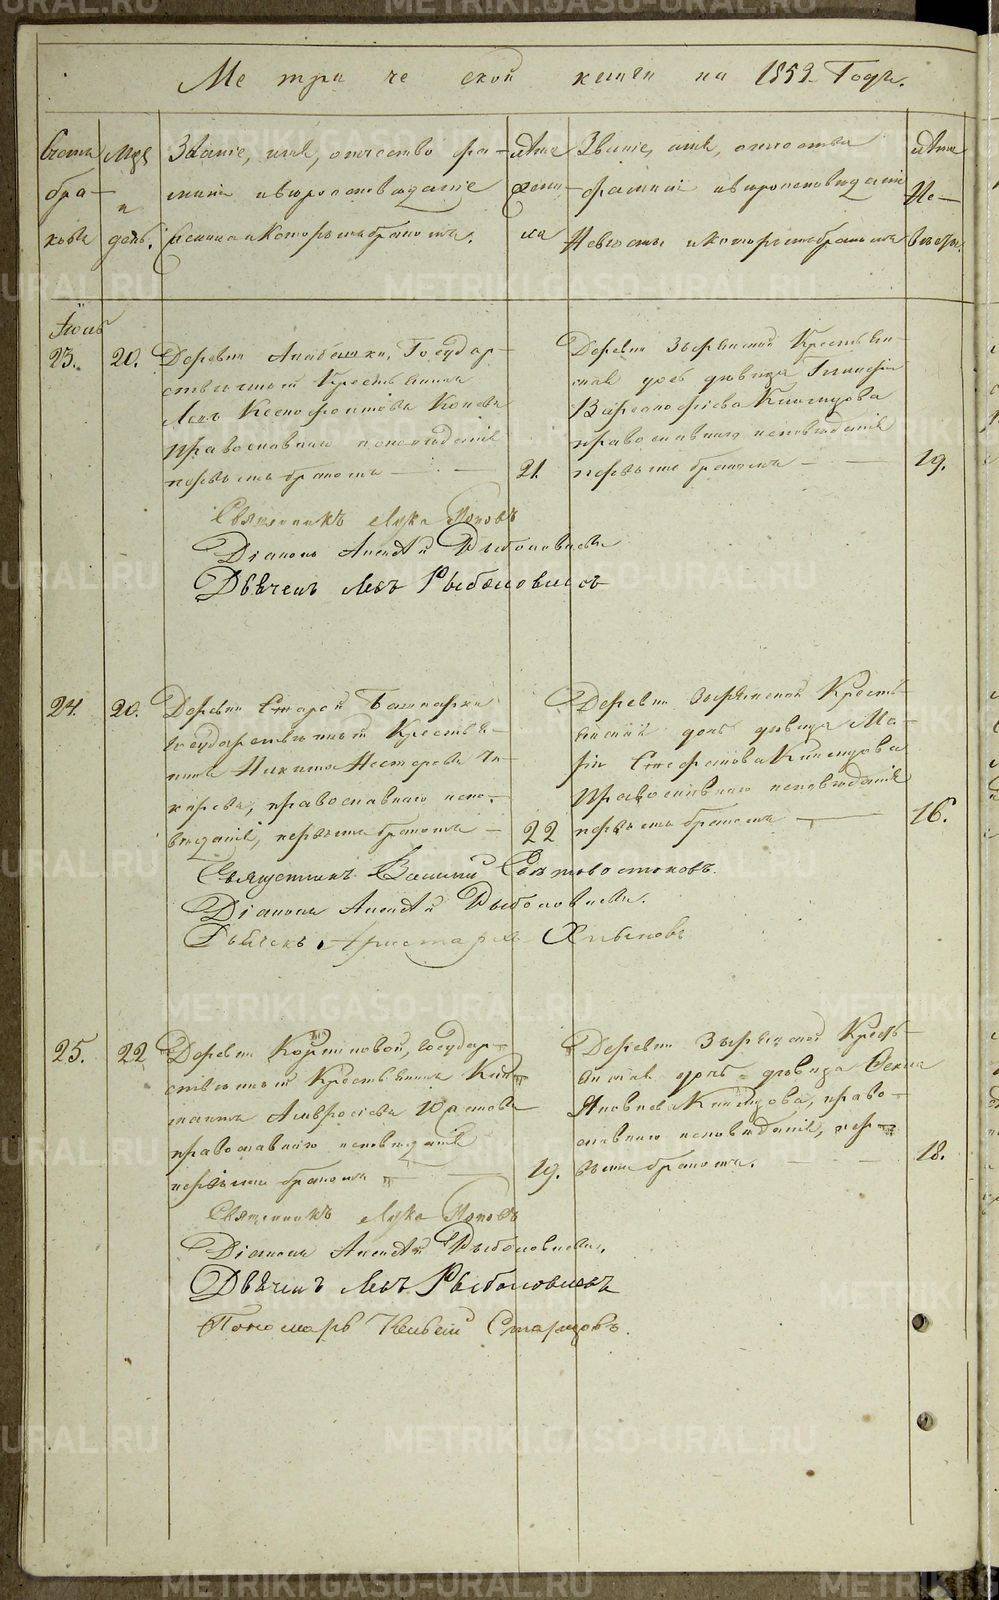 Ме три че ской книги на 1859 Годъ.
Счетъ
бра-
ковъ
Мцъ
и
день.
Званіе, имя, отчество фа-
милія и вѣроисповѣданіе
Жениха и Которымъ бракомъ.
лѣта
Жени-
ха
Званіе, имя, отчество
фамилія и вѣроисповѣданіе
Невѣсты и которымъ бракомъ
лѣта
Не-
вѣсты.
Іюль
23. 20. Деревни Алабашки, Государ-
ственный Крестьянинъ
Левъ Ксенофонтовъ Коневъ
православнаго исповѣданія
первымъ бракомъ
21.
Деревни Зырянской Крестьян-
ская дочь дѣвица Гликерія
Варѳоломѣева Климцова
православнаго исповѣданія
первымъ бракомъ
19.
Священникъ Лука Поповъ
Діаконъ Рыболовлевъ
Дьячекъ Левъ Рыболовлевъ
24. 20. Деревни Старой Башкарки
государственный Крестья-
нинъ Никита Нестеровъ
православнаго испо-
вѣданія, первымъ бракомъ
22
Деревни Зырянской Кресть-
янская дочь дѣвица Ма-
рія Стефанова Климцова
православнаго исповѣданія
первымъ бракомъ
16.
Священникъ Василій Святовостоковъ.
Діаконъ Рыболовлевъ.
Дьячекъ Аристархъ
25. 22 Деревни Корниловой, государ-
ственный Крестьянинъ
Амвросіевъ
православнаго исповѣданія
первымъ бракомъ
19.
Деревни Зырянской Кресть-
янская дочь дѣвица Ѳекла
Яковлева Климцова, право-
славнаго исповѣданія, пер-
вымъ бракомъ.
18.
Священникъ Лука Поповъ
Діаконъ Рыболовлевъ.
Дьячекъ Левъ Рыболовлевъ
Пономарь Старцовъ.
METRIKI.GASO-URAL.RU